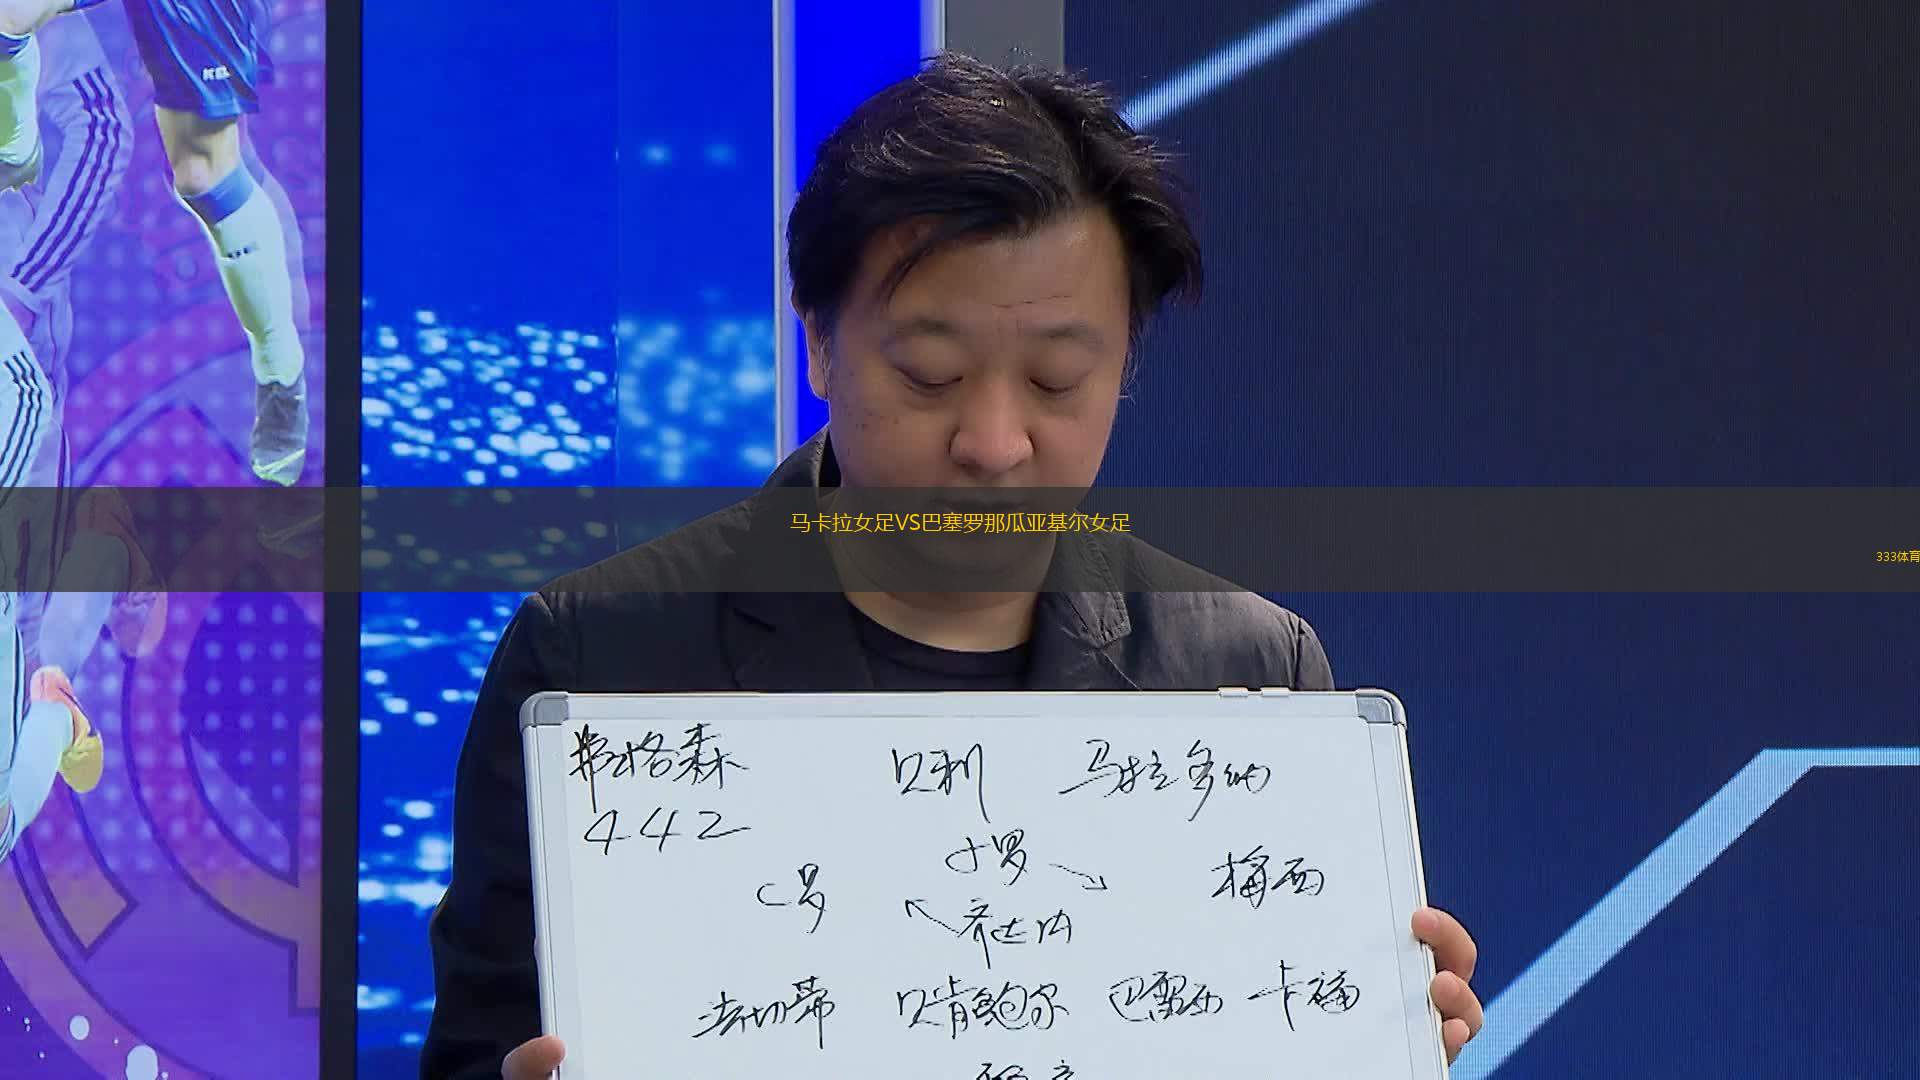 马卡拉女足VS巴塞罗那瓜亚基尔女足
333体育
弗格森 贝利 马拉多纳
442
小罗
C罗 梅西
齐达内
法切蒂 贝肯鲍尔 巴雷西 卡福